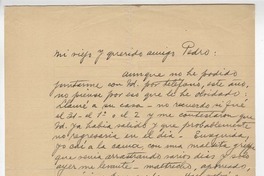 Mi viejo y querido amigo Pedro:
Aunque no he podido
juntarme con Ud. por teléfono, este año,
no piense por eso que le he olvidado.
Llamé a su casa - no recuerdo si fué
el 31 - el 1° o el 2 y me contestaron que
Ud. ya había salido y que probablemente
no regresaría en el día. Enseguida,
yo caí a la cama con una maldita gripe
que venía arrastrando varios días y sólo
ayer me levanté - maltrecho, apenado,